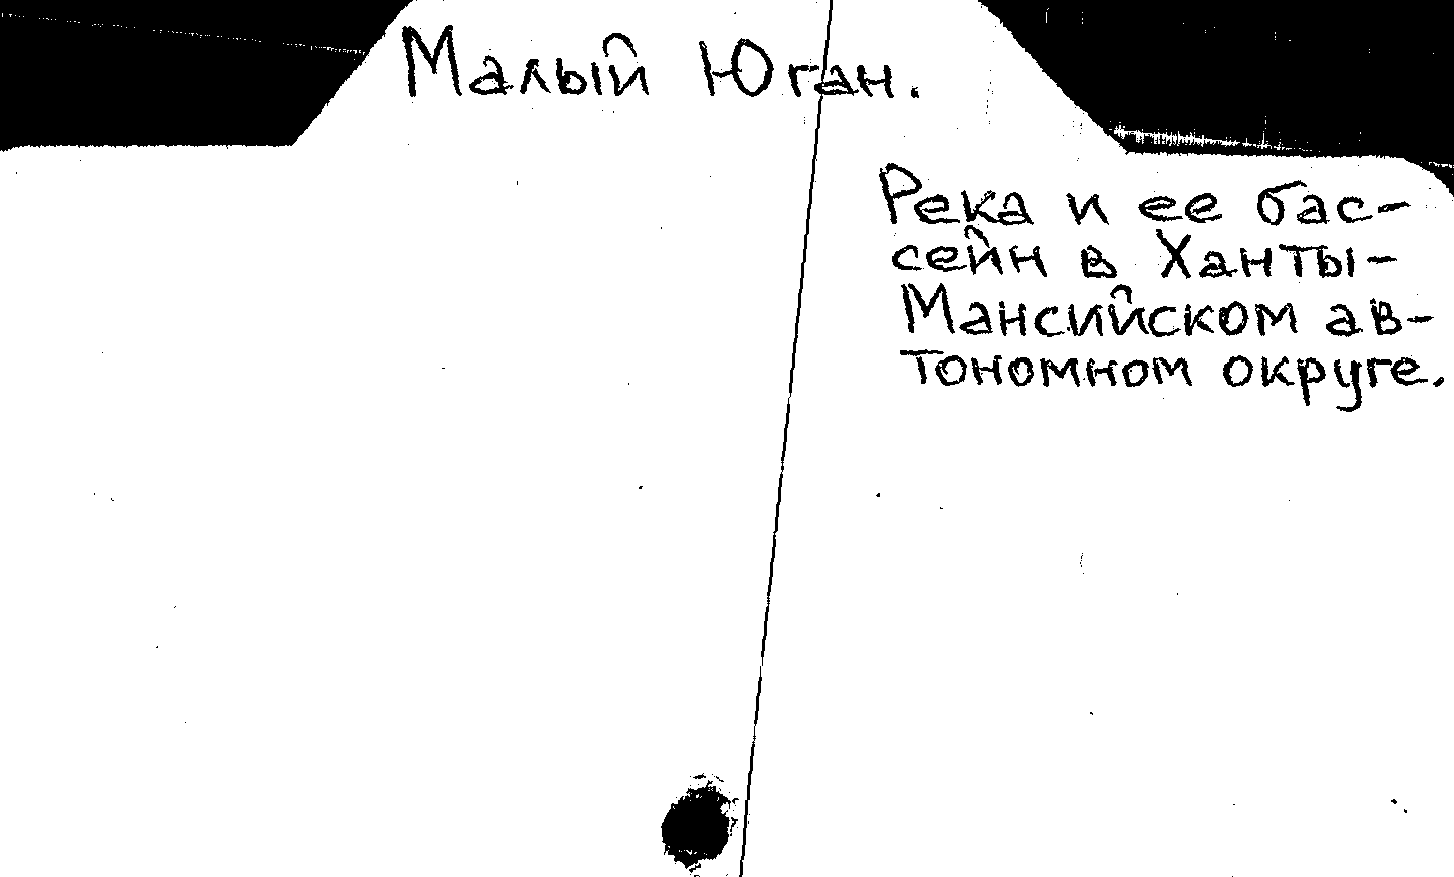 Малый Юган.
Река и ее бас-
сейн в Ханты-
Мансийском ав-
тономном округе.